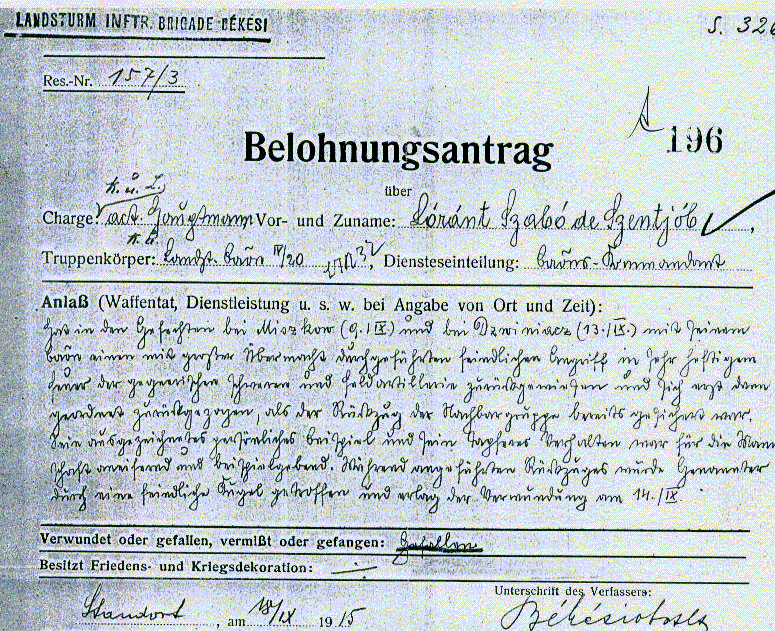 LANDSTURM INFTR. BRIGADE BÉKÉSI
S. 326
Res.-Nr. 157/3
A 196
Belohnungsantrag
über
k. u. L.
Charge: act. Hauptmann Vor- und Zuname: Lóránt Szabó de Szentjób,
k. u.
Truppenkörper: Landst. Baon IV/20, Diensteseinteilung: Baons-Kommandant
Anlaß (Waffentat, Dienstleistung u. s. w. bei Angabe von Ort und Zeit):
Hat in den Gefechten bei Miozkow (9./IX.) und bei Dzwiniacz (13./IX.) mit seinem
Baon einen mit großer Übermacht durchgeführten feindlichen Angriff in sehr heftigem
Feuer der gegnerischen schweren und Feldartillerie zurückgewiesen und sich erst dann
geordnet zurückgezogen, als der Rückzug der Nachbargruppe bereits gesichert war.
Sein ausgezeichnetes persönliches Beispiel und sein tapferes Verhalten war für die Mann
schaft aneifernd und beispielgebend. Während angeführten Rückzuges wurde Genannter
durch eine feindliche Kugel getroffen und erlag der Verwundung am 14./IX.
Verwundet oder gefallen, vermißt oder gefangen: Gefallen
Besitzt Friedens- und Kriegsdekoration: —
Unterschrift des Verfassers:
Standort, am 18/IX 1915